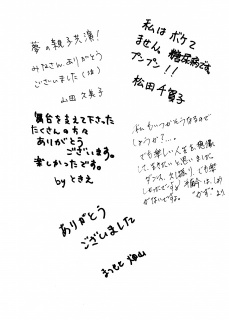 夢の親子共演!
みなさん、ありがとう
ございました(は)
山田 久美子
私はボケて
ません。糖尿病です
プンプン!!
松田千賀子
舞台を支えて下さった
たくさんの方々
ありがとう
ございます。
楽しかったです。
by ときえ
私もいつかそうなるので
しょうか?...
でも楽しい人生を想像
して、生きたいと思いました。
ダンス、久し振り、でも楽
しかったです。
ありがとう
ございました
まつもと